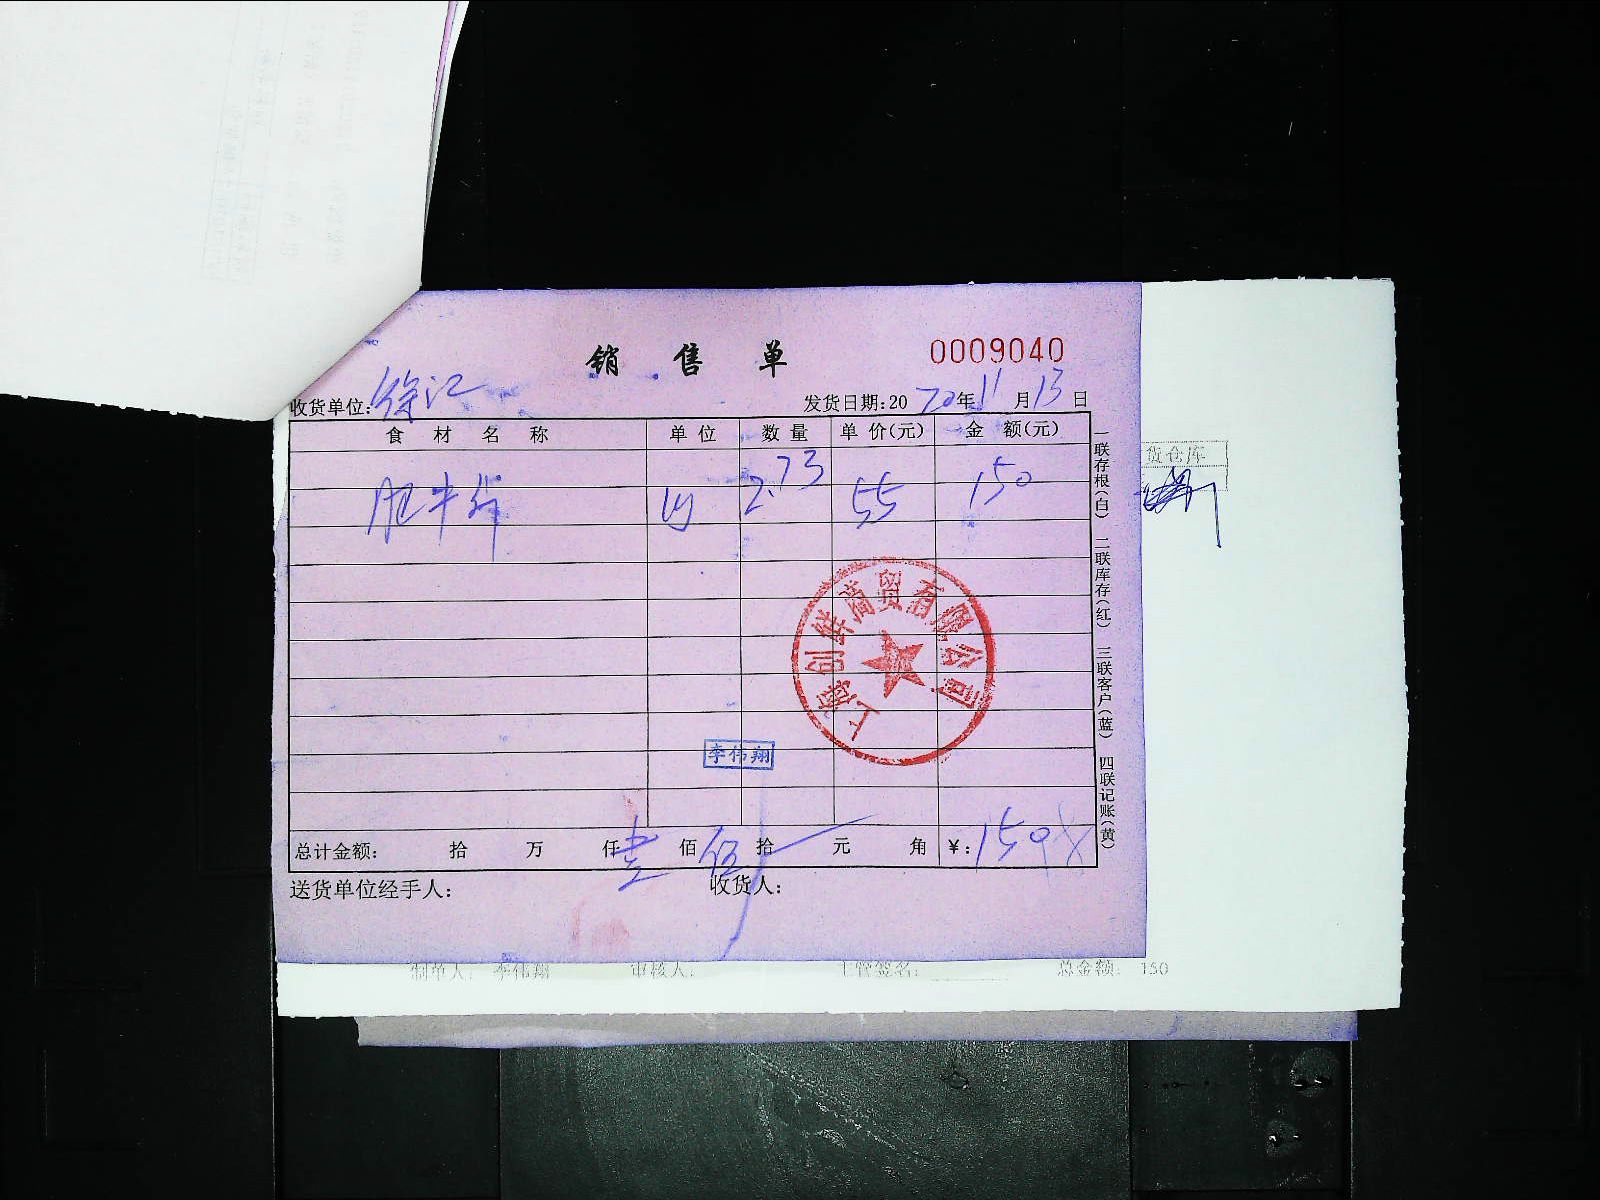 销售单
0009040
收货单位:徐汇
发货日期:2020年11月13日
食材名称 单位 数量 单价(元) 金额(元)
肥牛 2.73 55 150
上海创鲜商贸有限公司
李伟翔
总计金额: 拾 万 仟 壹 佰 伍 拾 元 角 ¥:150
送货单位经手人: 收货人:
一联存根(白) 二联库存(红) 三联客户(蓝) 四联记账(黄)
货仓库
制单人: 李伟翔 审核人: 主管签名: 总金额: 150